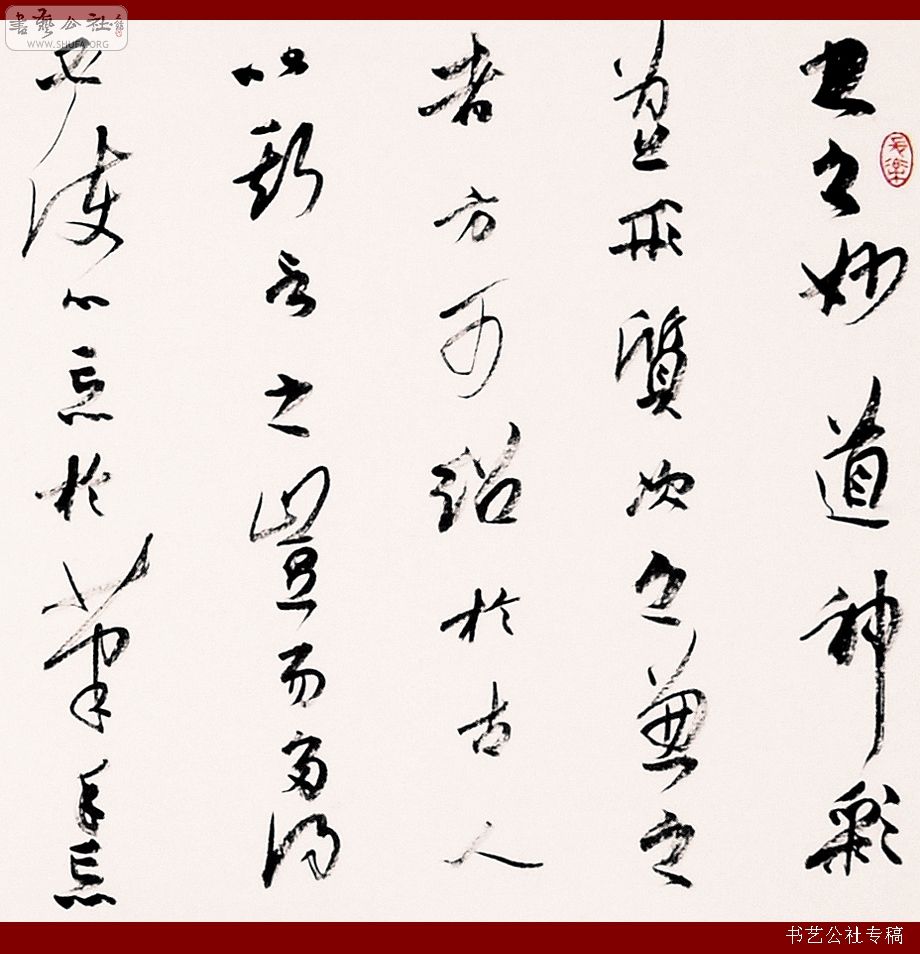 書藝公社
WWW.SHUFA.ORG
書之妙道神彩
為上形質次之兼之
者方可紹於古人
以斯言之豈易多得
必使心忘於筆手忘
书艺公社专稿